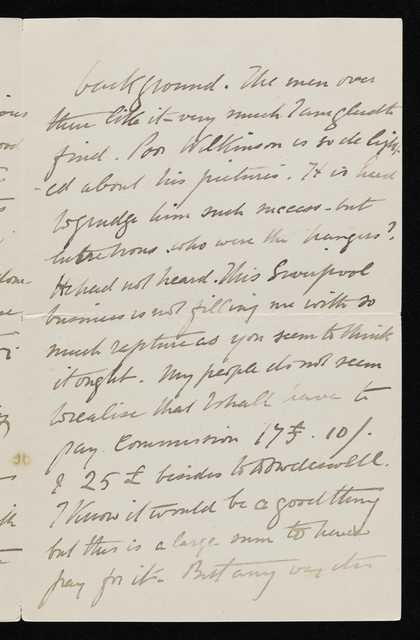 background. The men over
there like it very much I am glad to
find. Poor Wilkinson is so deligh-
-ed about his pictures. It is hard
to grudge him such success - but
who were the hangers?
He had not heard. This Liverpool
business is not filling me with so
much rapture as you seem to think
it ought. My people do not seem
to realise that I shall have to
pay Commission 17£. 10/.
& 25 £ besides to Dowdeswell.
I know it would be a good thing
but this is a large sum to have
pay for it. But any way